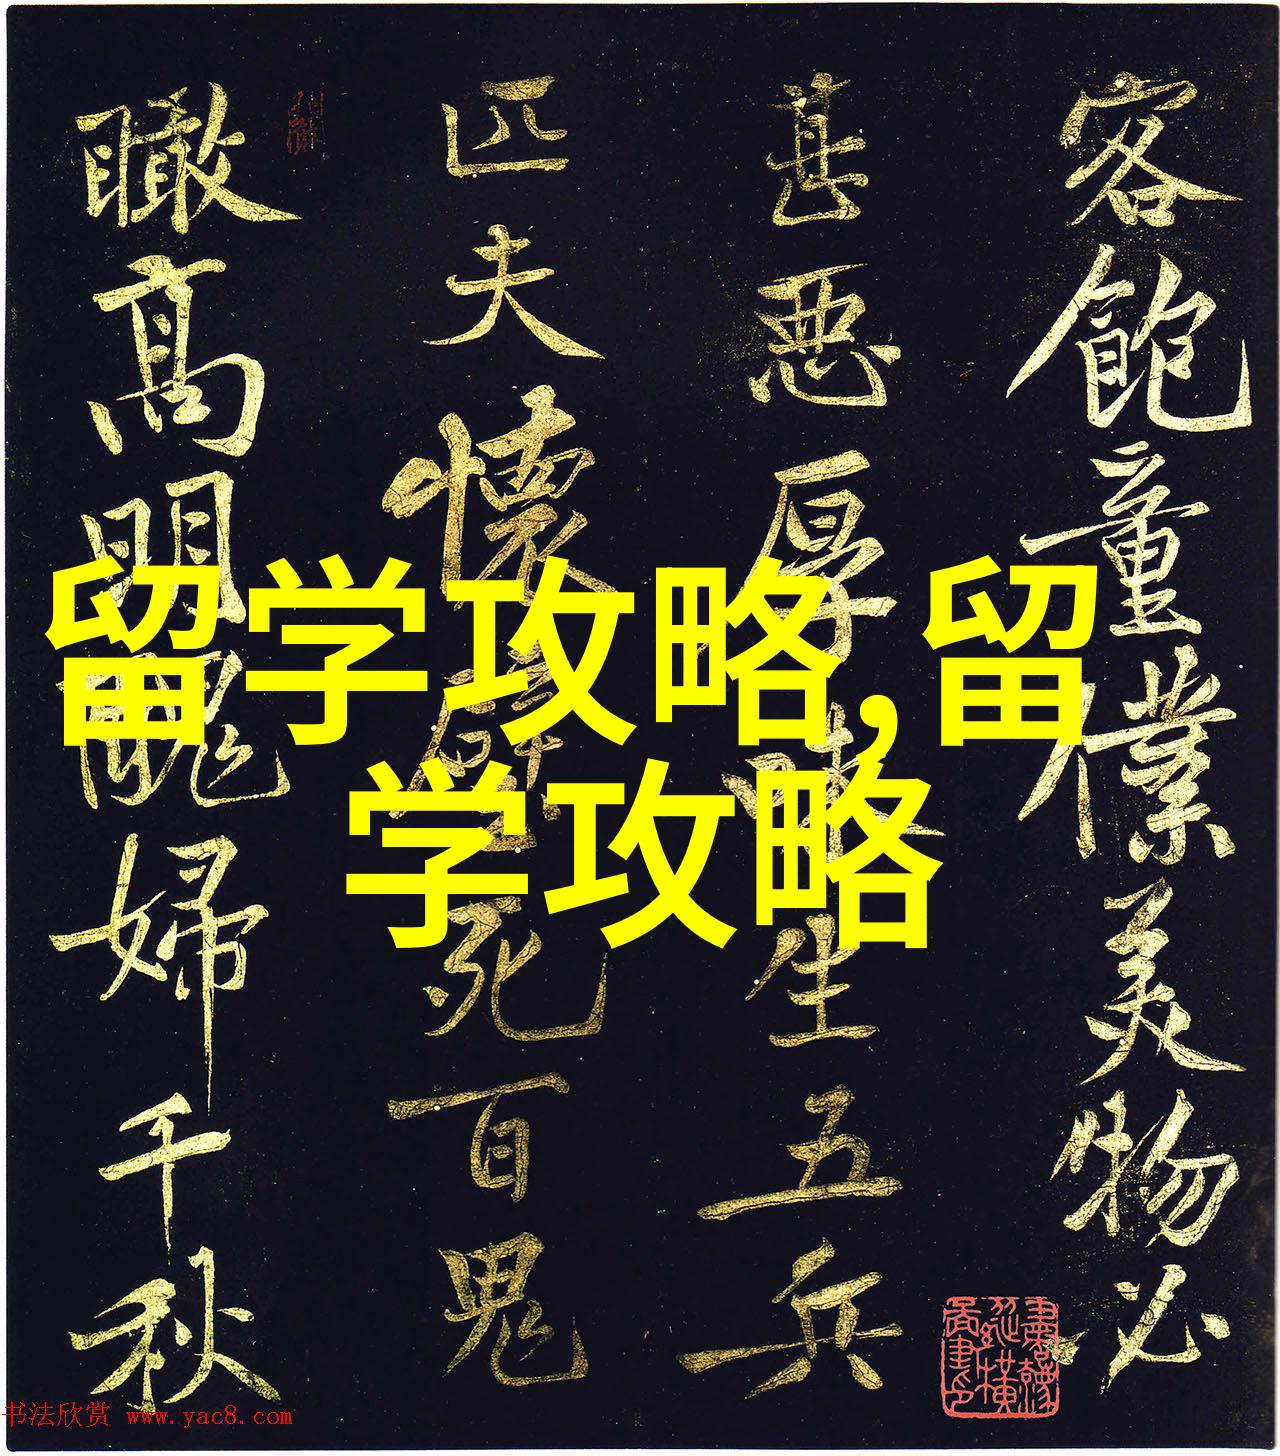 客飽童僕美物必
甚惡厚味生五兵
匹夫懷璧死百鬼
瞰高明醜婦千秋
留学攻略,留
学攻略
书法欣赏 www.yac8.com